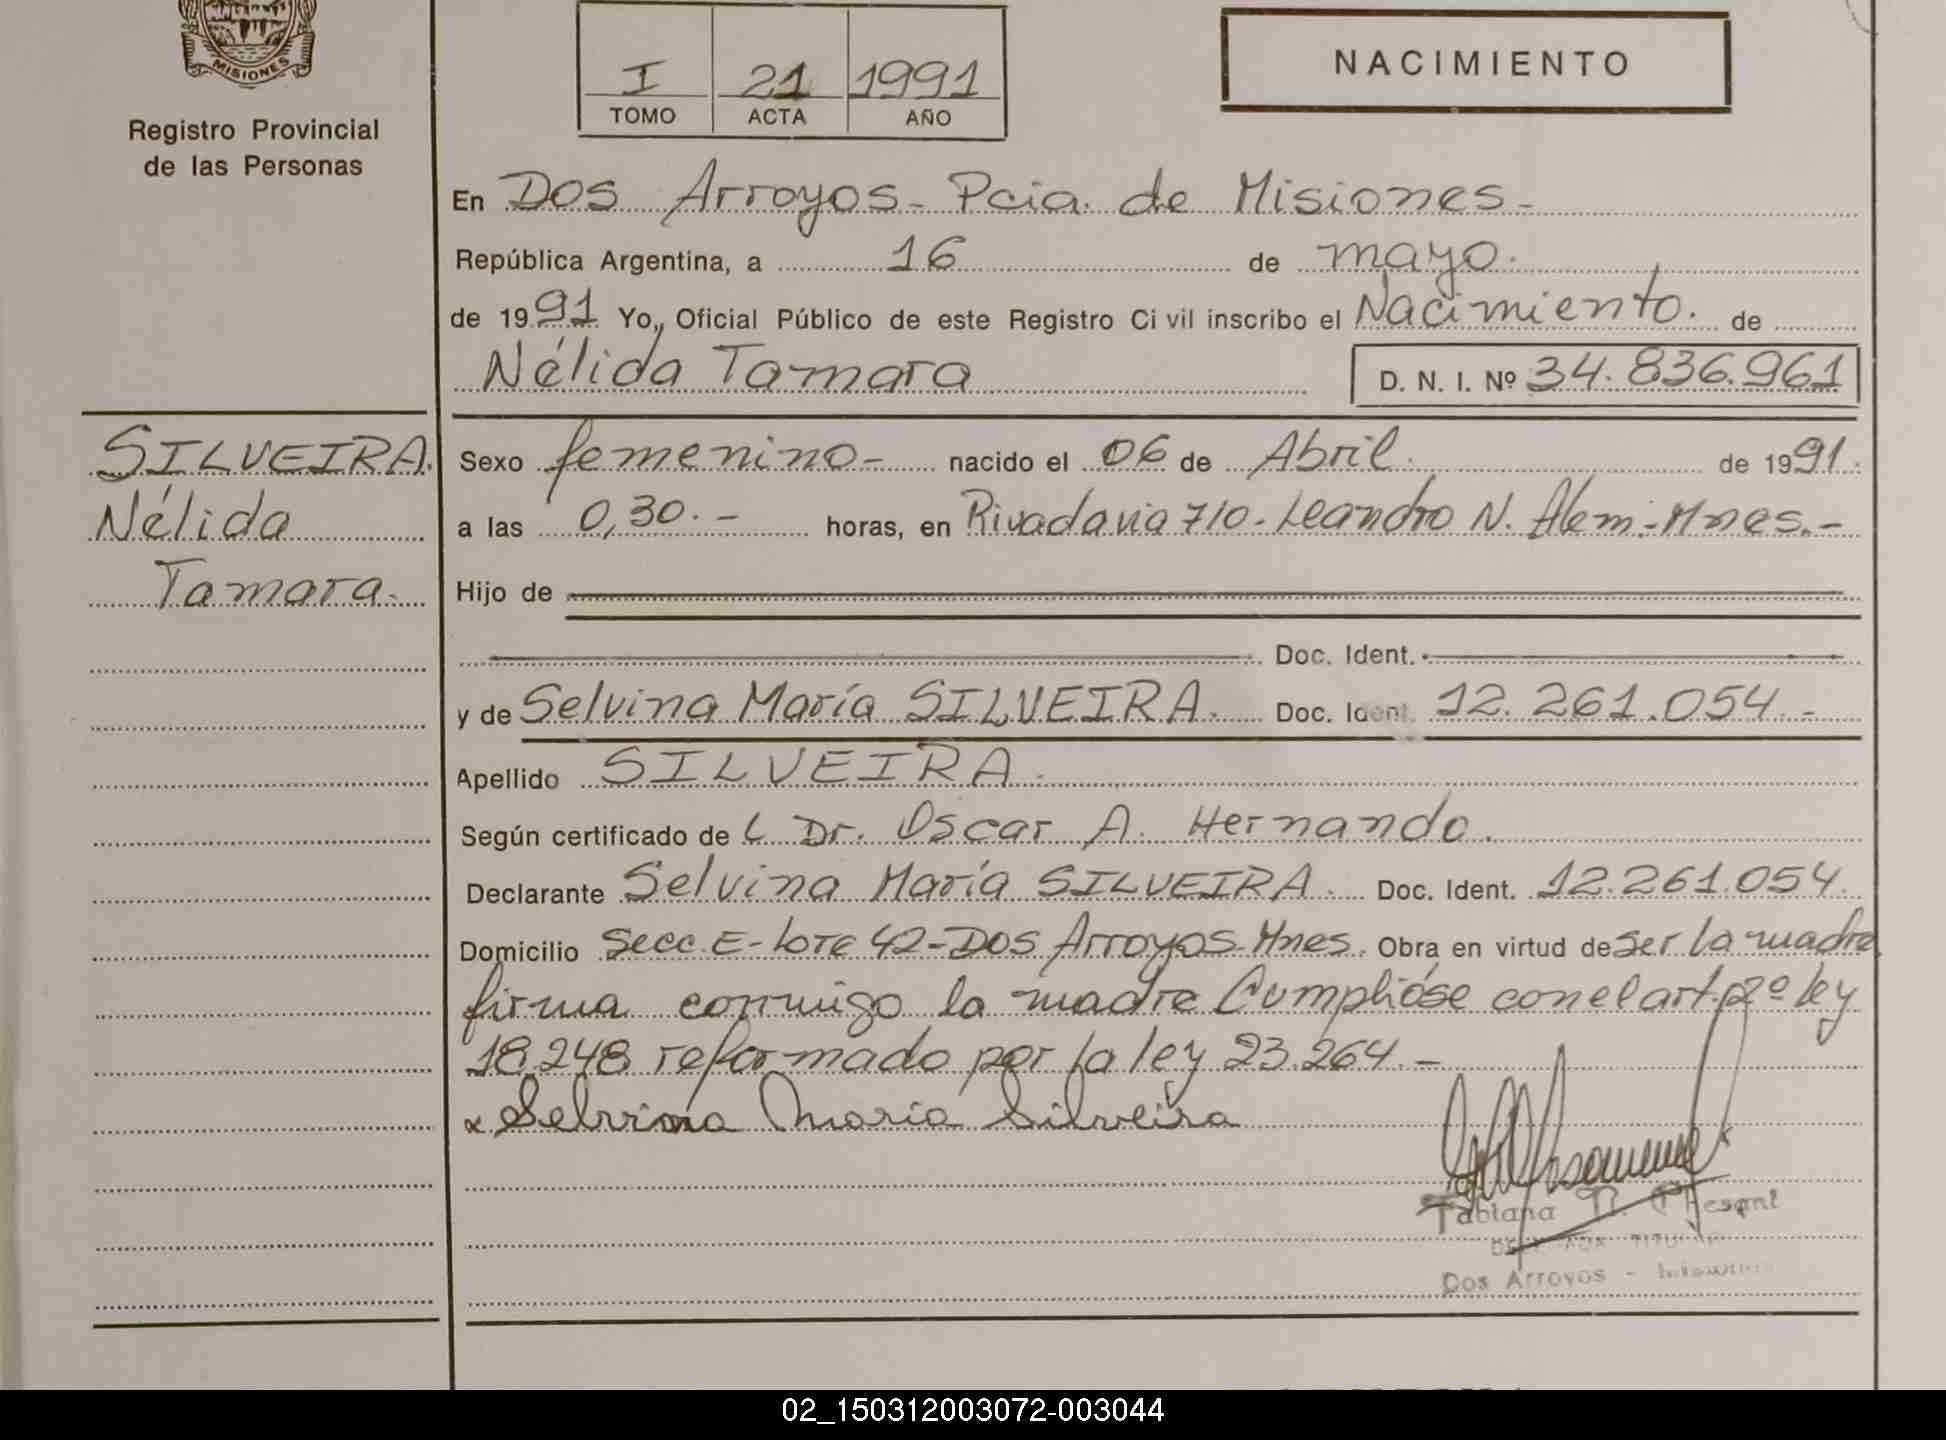 MISIONES
Registro Provincial
de las Personas
I 21 1991
TOMO ACTA AÑO
NACIMIENTO
En Dos Arroyos - Pcia. de Misiones -
República Argentina, a 16 de mayo.
de 1991. Yo, Oficial Público de este Registro Civil inscribo el Nacimiento. de
Nélida Tamara D. N. I. Nº 34.836.961
SILVEIRA.
Nélida
Tamara.
Sexo femenino - nacido el 06 de Abril. de 1991.
a las 0,30. - horas, en Rivadavia 710 - Leandro N. Alem - Mnes. -
Hijo de
Doc. Ident.
y de Selvina María SILVEIRA. Doc. Ident. 12.261.054. -
Apellido SILVEIRA.
Según certificado de Dr. Oscar A. Hernando.
Declarante Selvina María SILVEIRA. Doc. Ident. 12.261.054.
Domicilio Secc. E - Lote 42 - Dos Arroyos - Mnes. Obra en virtud de ser la madre
firma conmigo la madre Cumplióse con el art. 2º ley
18.248 reformado por la ley 23.264. -
x Selvina Maria Silveira
Fabiana N.
TITULAR
Dos Arroyos -
02_150312003072-003044